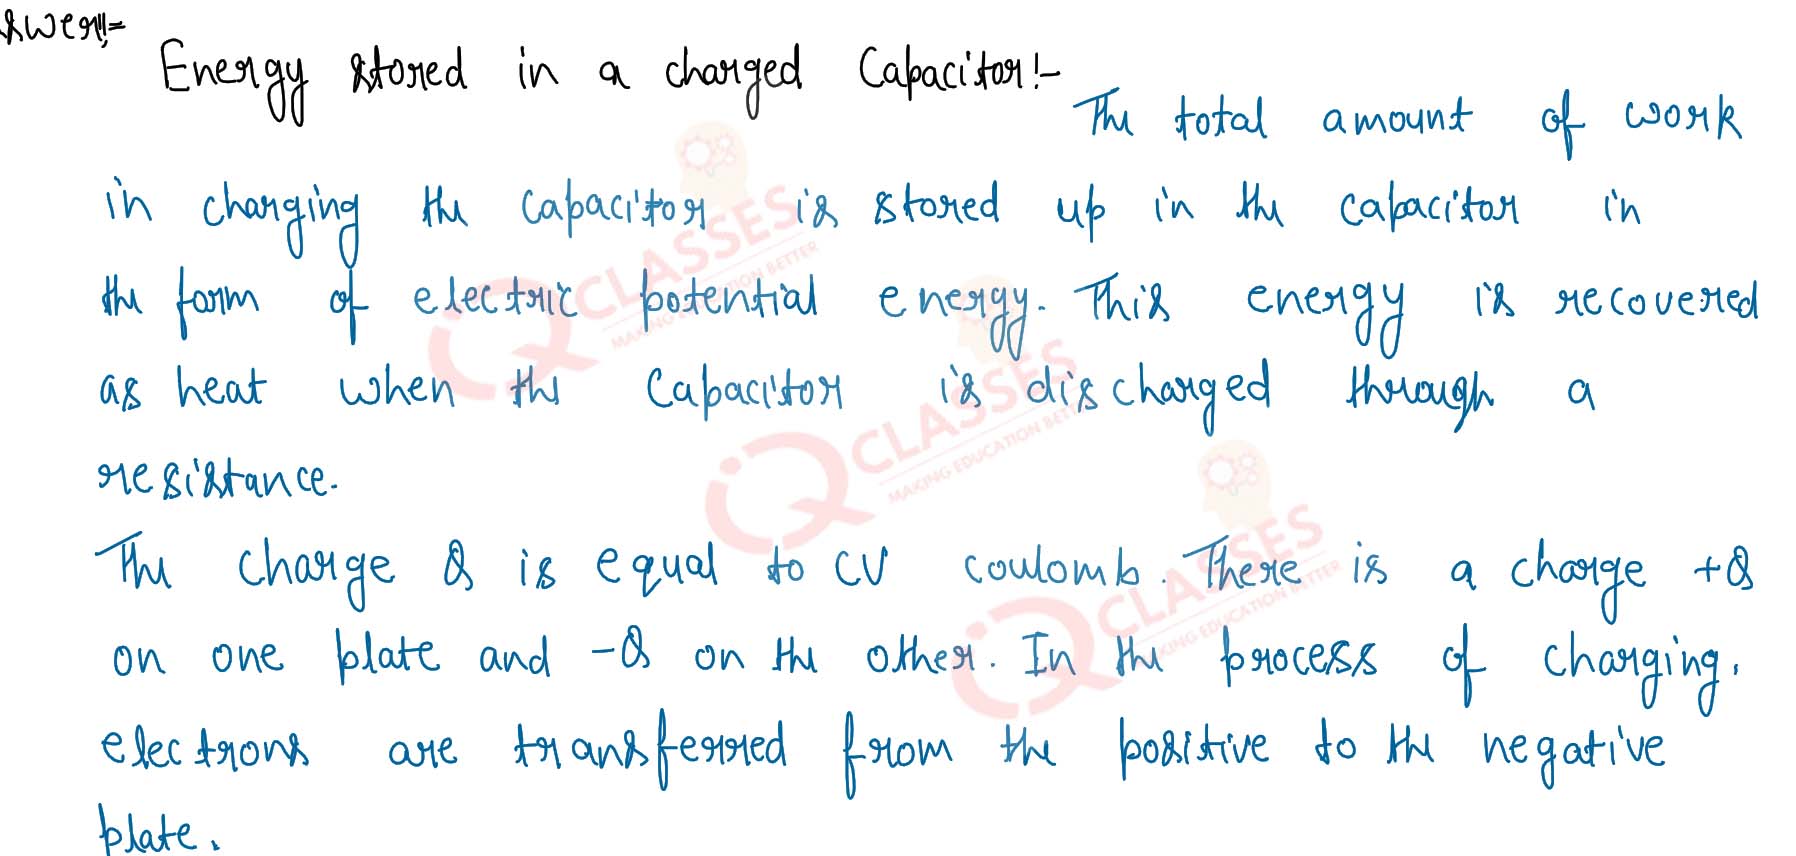 swer:-
Energy stored in a charged Capacitor:-
The total amount of work
in charging the capacitor is stored up in the capacitor in
the form of electric potential energy. This energy is recovered
as heat when the Capacitor is discharged through a
resistance.
The charge Q is equal to CV coulomb. There is a charge +Q
on one plate and -Q on the other. In the process of charging,
electrons are transferred from the positive to the negative
plate.
IQ CLASSES
MAKING EDUCATION BETTER
IQ CLASSES
MAKING EDUCATION BETTER
IQ CLASSES
MAKING EDUCATION BETTER